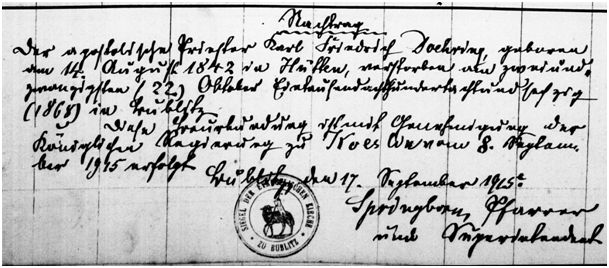 Nachtrag
Der apostolische Priester Karl Friedrich Doehring, geboren
am 14. August 1842 in Hütten, verstorben am zweiund-
zwanzigsten (22) Oktober Eintausendachthundertachtundsechzig
(1868) in Bublitz
Diese Beurkundung ist mit Genehmigung der
Königlichen Regierung zu Koeslin vom 8. Septem-
ber 1915 erfolgt
Bublitz, den 17. September 1915
Springborn, Pfarrer
und Superintendent
SIEGEL DER KIRCHE
ZU BUBLITZ